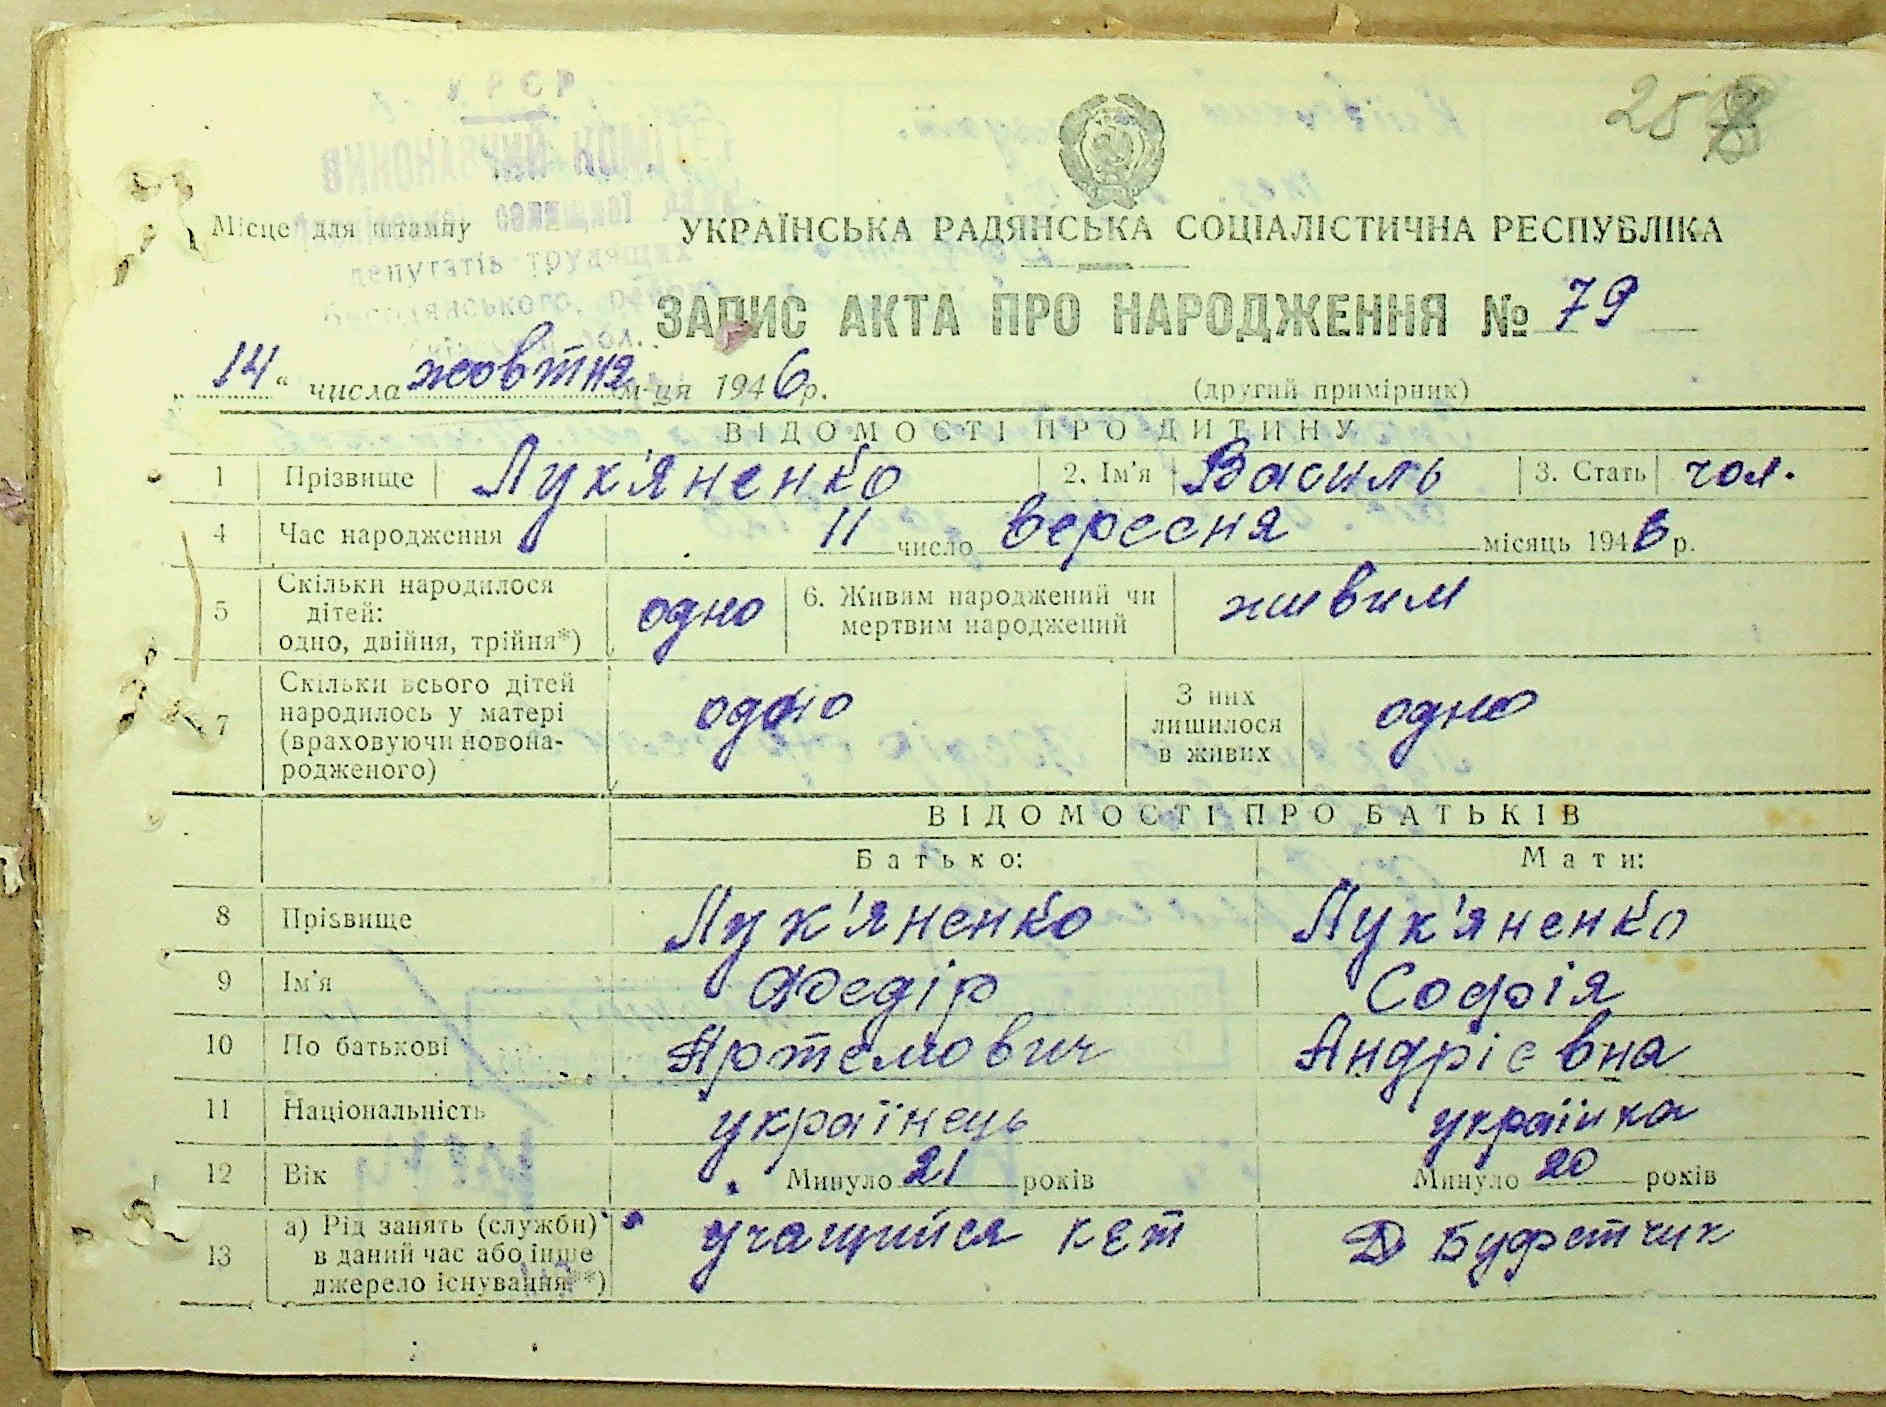 258
УРСР
ВИКОНАВЧИЙ КОМІТЕТ
селищної Ради
депутатів трудящих
Бородянського району
Місце для штампу
УКРАЇНСЬКА РАДЯНСЬКА СОЦІАЛІСТИЧНА РЕСПУБЛІКА
ЗАПИС АКТА ПРО НАРОДЖЕННЯ № 79
„14“ числа жовтня м-ця 1946 р. (другий примірник)
ВІДОМОСТІ ПРО ДИТИНУ
1 Прізвище Лук'яненко 2. Ім'я Василь 3. Стать чол.
4 Час народження 11 число вересня місяць 1946 р.
5 Скільки народилося дітей: одно, двійня, трійня*) одно 6. Живим народжений чи мертвим народжений живим
7 Скільки всього дітей народилось у матері (враховуючи новона-родженого) одно З них лишилося в живих одно
ВІДОМОСТІ ПРО БАТЬКІВ
Батько: Мати:
8 Прізвище Лук'яненко Лук'яненко
9 Ім'я Федір Софія
10 По батькові Артемович Андріевна
11 Національність українець українка
12 Вік Минуло 21 років Минуло 20 років
13 а) Рід занять (служби) в даний час або інше джерело існування**) учащийся кет Буфетчик